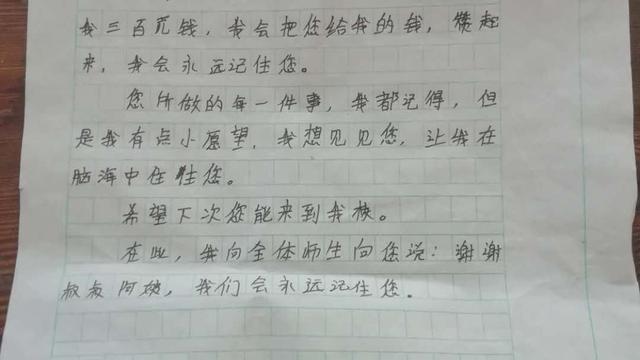 我三百元钱，我会把您给我的钱，攒起
来，我会永远记住您。
您所做的每一件事，我都记得，但
是我有点小愿望，我想见见您，让我在
脑海中住住您。
希望下次您能来到我校。
在此，我向全体师生向您说：谢谢
叔叔阿姨，我们会永远记住您。